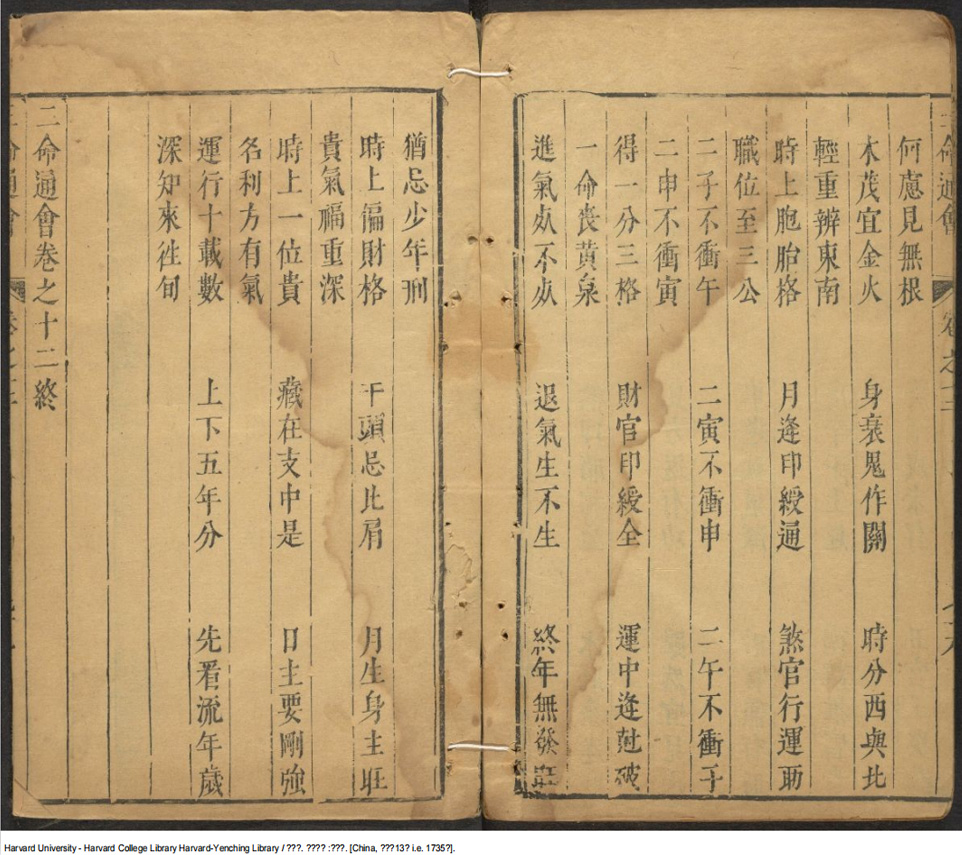 命通會
卷之十二
何慮見無根
木茂宜金火 身衰鬼作關 時分西與北
輕重辨東南
時上胞胎格 月逢印綬通 煞官行運助
職位至三公
二子不衝午 二寅不衝申 二午不衝子
二申不衝寅
得一分三格 財官印綬全 運中逢尅破
一命喪黃泉
進氣死不死 退氣生不生 終年無發旺
猶忌少年刑
時上偏財格 干頭忌比肩 月生身主旺
貴氣福重深
時上一位貴 藏在支中是 日主要剛強
名利方有氣
運行十載數 上下五年分 先看流年歲
深知來徃旬
三命通會卷之十二終
Harvard University - Harvard College Library Harvard-Yenching Library / ???. ???? :???. [China, ???13? i.e. 1735?].